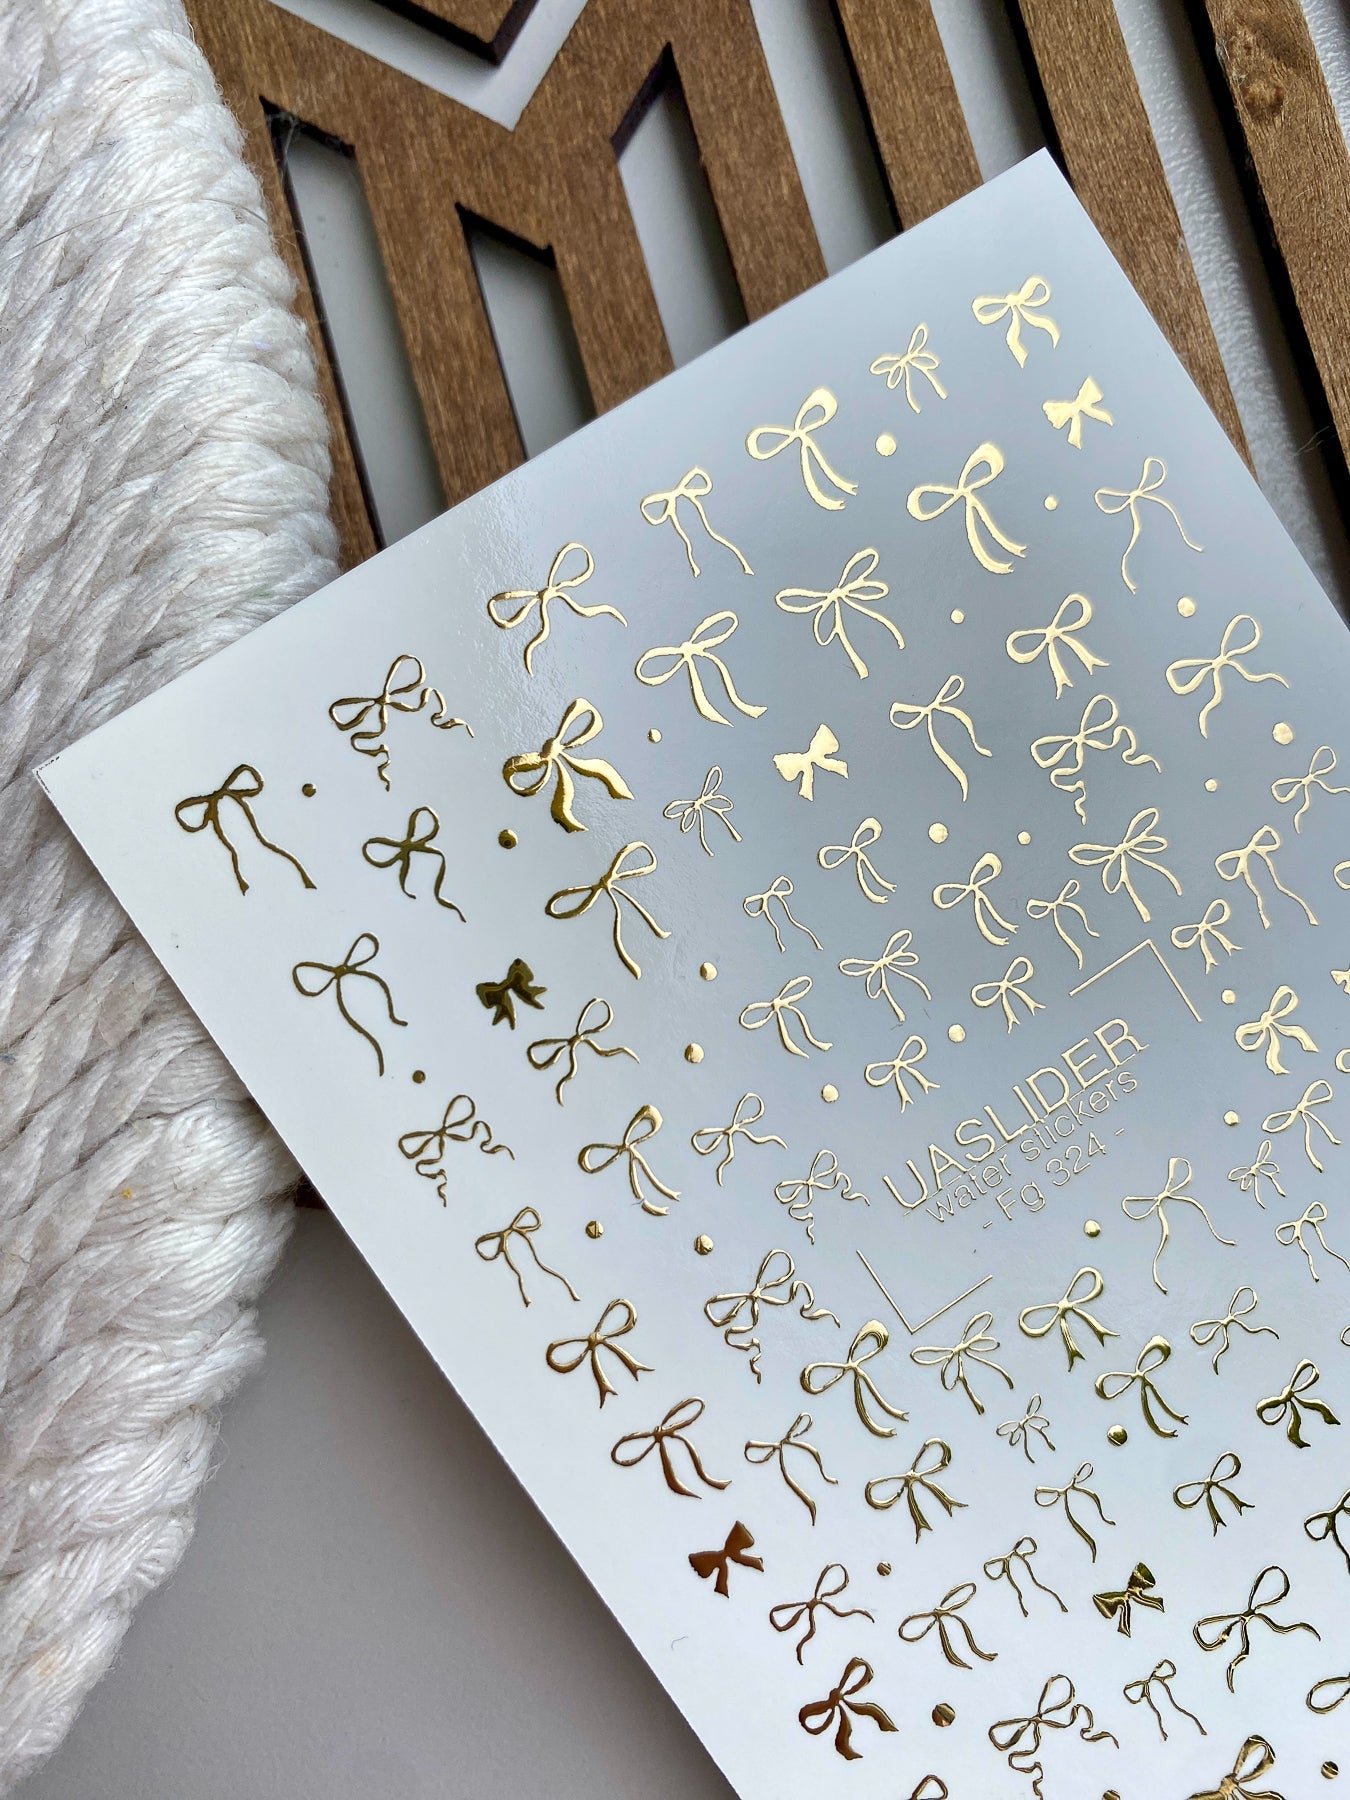 UASLIDER
water stickers
- Fg 324 -